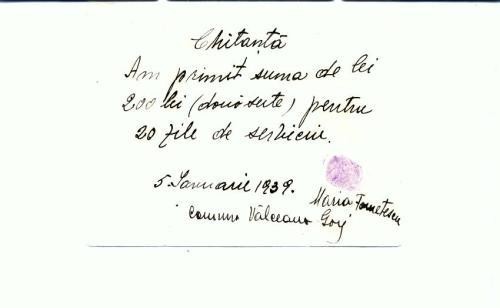 Chitanță
Am primit suma de lei
200 lei (două sute) pentru
20 zile de serviciu.
5 Ianuarie 1939.
Maria
comuna Vâlceana Gorj